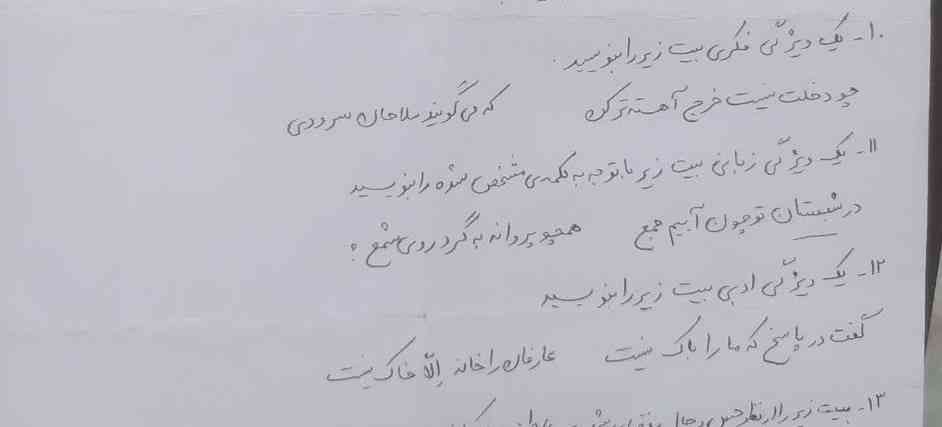 ۱۰- یک ویژگی فکری بیت زیر را بنویسید.
چو دخلت نیست خرج آهسته تر کن که می گویند ملاحان سرودی
۱۱- یک ویژگی زبانی بیت زیر با توجه به کلمه ی مشخص شده را بنویسید
در شبستان تو چون آییم جمع همچو پروانه به گرد روی شمع ؟
۱۲- یک ویژگی ادبی بیت زیر را بنویسید
گفت در پاسخ که ما را باک نیست عارفان را خانه اِلّا خاک نیست
۱۳- بیت زیر را از نظر